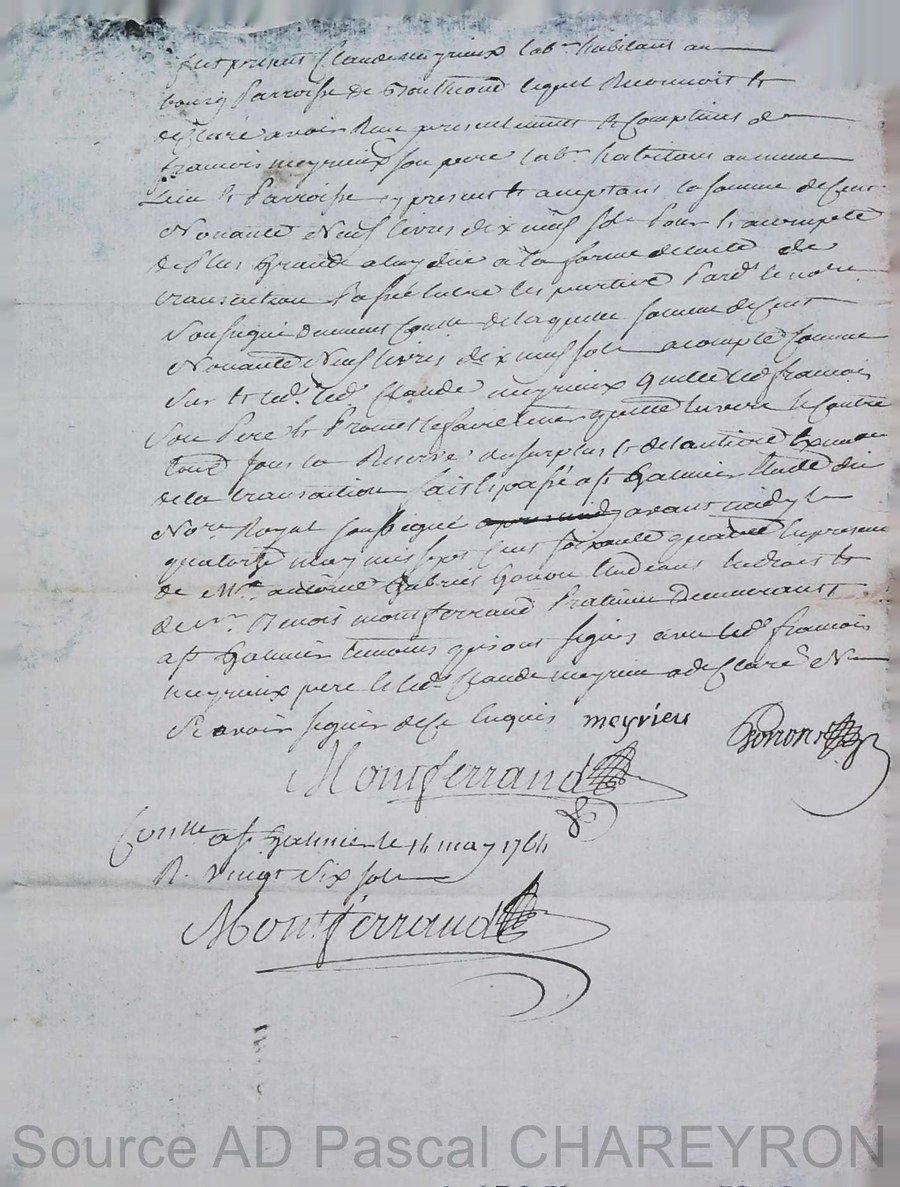 fut present Claude meyrieux lab.r habitant au
bourg Parroisse de lequel Reconnoit et
declaré avoir Reçu presentement et Comptant de
francois meyrieux son pere lab.r habitant au meme
Lieu et Parroisse cy present et aceptant la somme de Cent
Nonante Neuf livres dix neuf sols Pour et acompte
de Plus Grande a luy due a la forme de lacte de
transaction Passé entre les parties Pard.t le not.re
Soussigné duement Con.lle de laquelle somme de Cent
Nonante Neuf livres dix neuf sols acompte
Sur led. Claude meyrieux quitte led. francois
Son Pere et Promet le faire tenir quitte envers et Contre
tous Sous la Reserve du surplus et
de la transaction fait et passé a st Galmier Etude du
No.re Royal soussigné avant midy le
quatorze may mil sept Cent soixante quatre En presence
de M.re antoine Gabriel Gonon Etudiant En droit et
de s.r Benoit montferrand Praticien Demeurant
a st Galmier temoins qui ont signés avec led. francois
meyrieux pere et led. Claude meyrieux a declaré Ne
Scavoir signer de ce Enquis meyrieu Gonon
Montferrand
Con.lle a st Galmier le 14 may 1764
R. Vingt Six sols
Montferrand
Source AD Pascal CHAREYRON